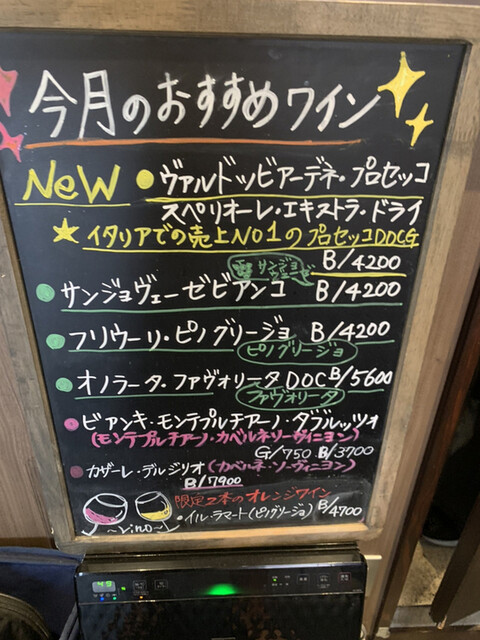 今月のおすすめワイン
NeW ●ヴァルドッビアーデネ・プロセッコ
スペリオーレ・エキストラ・ドライ
★イタリアでの売上NO1のプロセッコDOCG
B/4200
サンジョ
●サンジョヴェーゼビアンコ B/4200
●フリウーリ・ピノグリージョ B/4200
ピノグリージョ
●オノラータ・ファヴォリータDOC B/5600
ファヴォリータ
●ビアンキ・モンテプルチアーノ・ダブルッツォ
(モンテプルチアーノ・カベルネソーヴィニヨン)
G/750 B/3700
●カザーレ・デルジリオ(カベルネ・ソーヴィニヨン)
B/7900
限定2本のオレンジワイン
・イル・ラマート(ピノグリージョ) B/4700
~Vino~